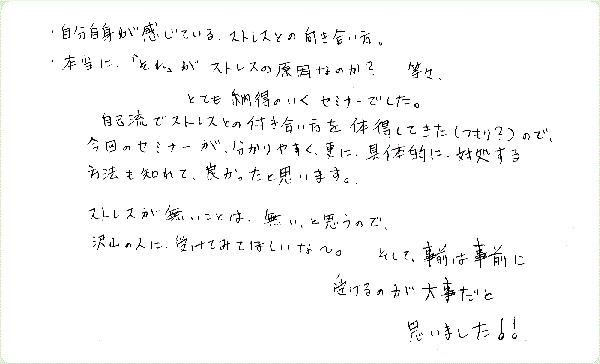 ・自分自身が感じている、ストレスとの向き合い方。
・本当に、「それ」がストレスの原因なのか？　等々、
とても納得のいくセミナーでした。
自己流でストレスとの付き合い方を体得してきた(つもり？)ので、
今回のセミナーが、分かりやすく、更に、具体的に、対処する
方法も知れて、良かったと思います。
ストレスが無いことは、無い、と思うので、
沢山の人に、受けてみてほしいな〜。　そして、事前は事前に
受けるのが大事だと
思いました!!